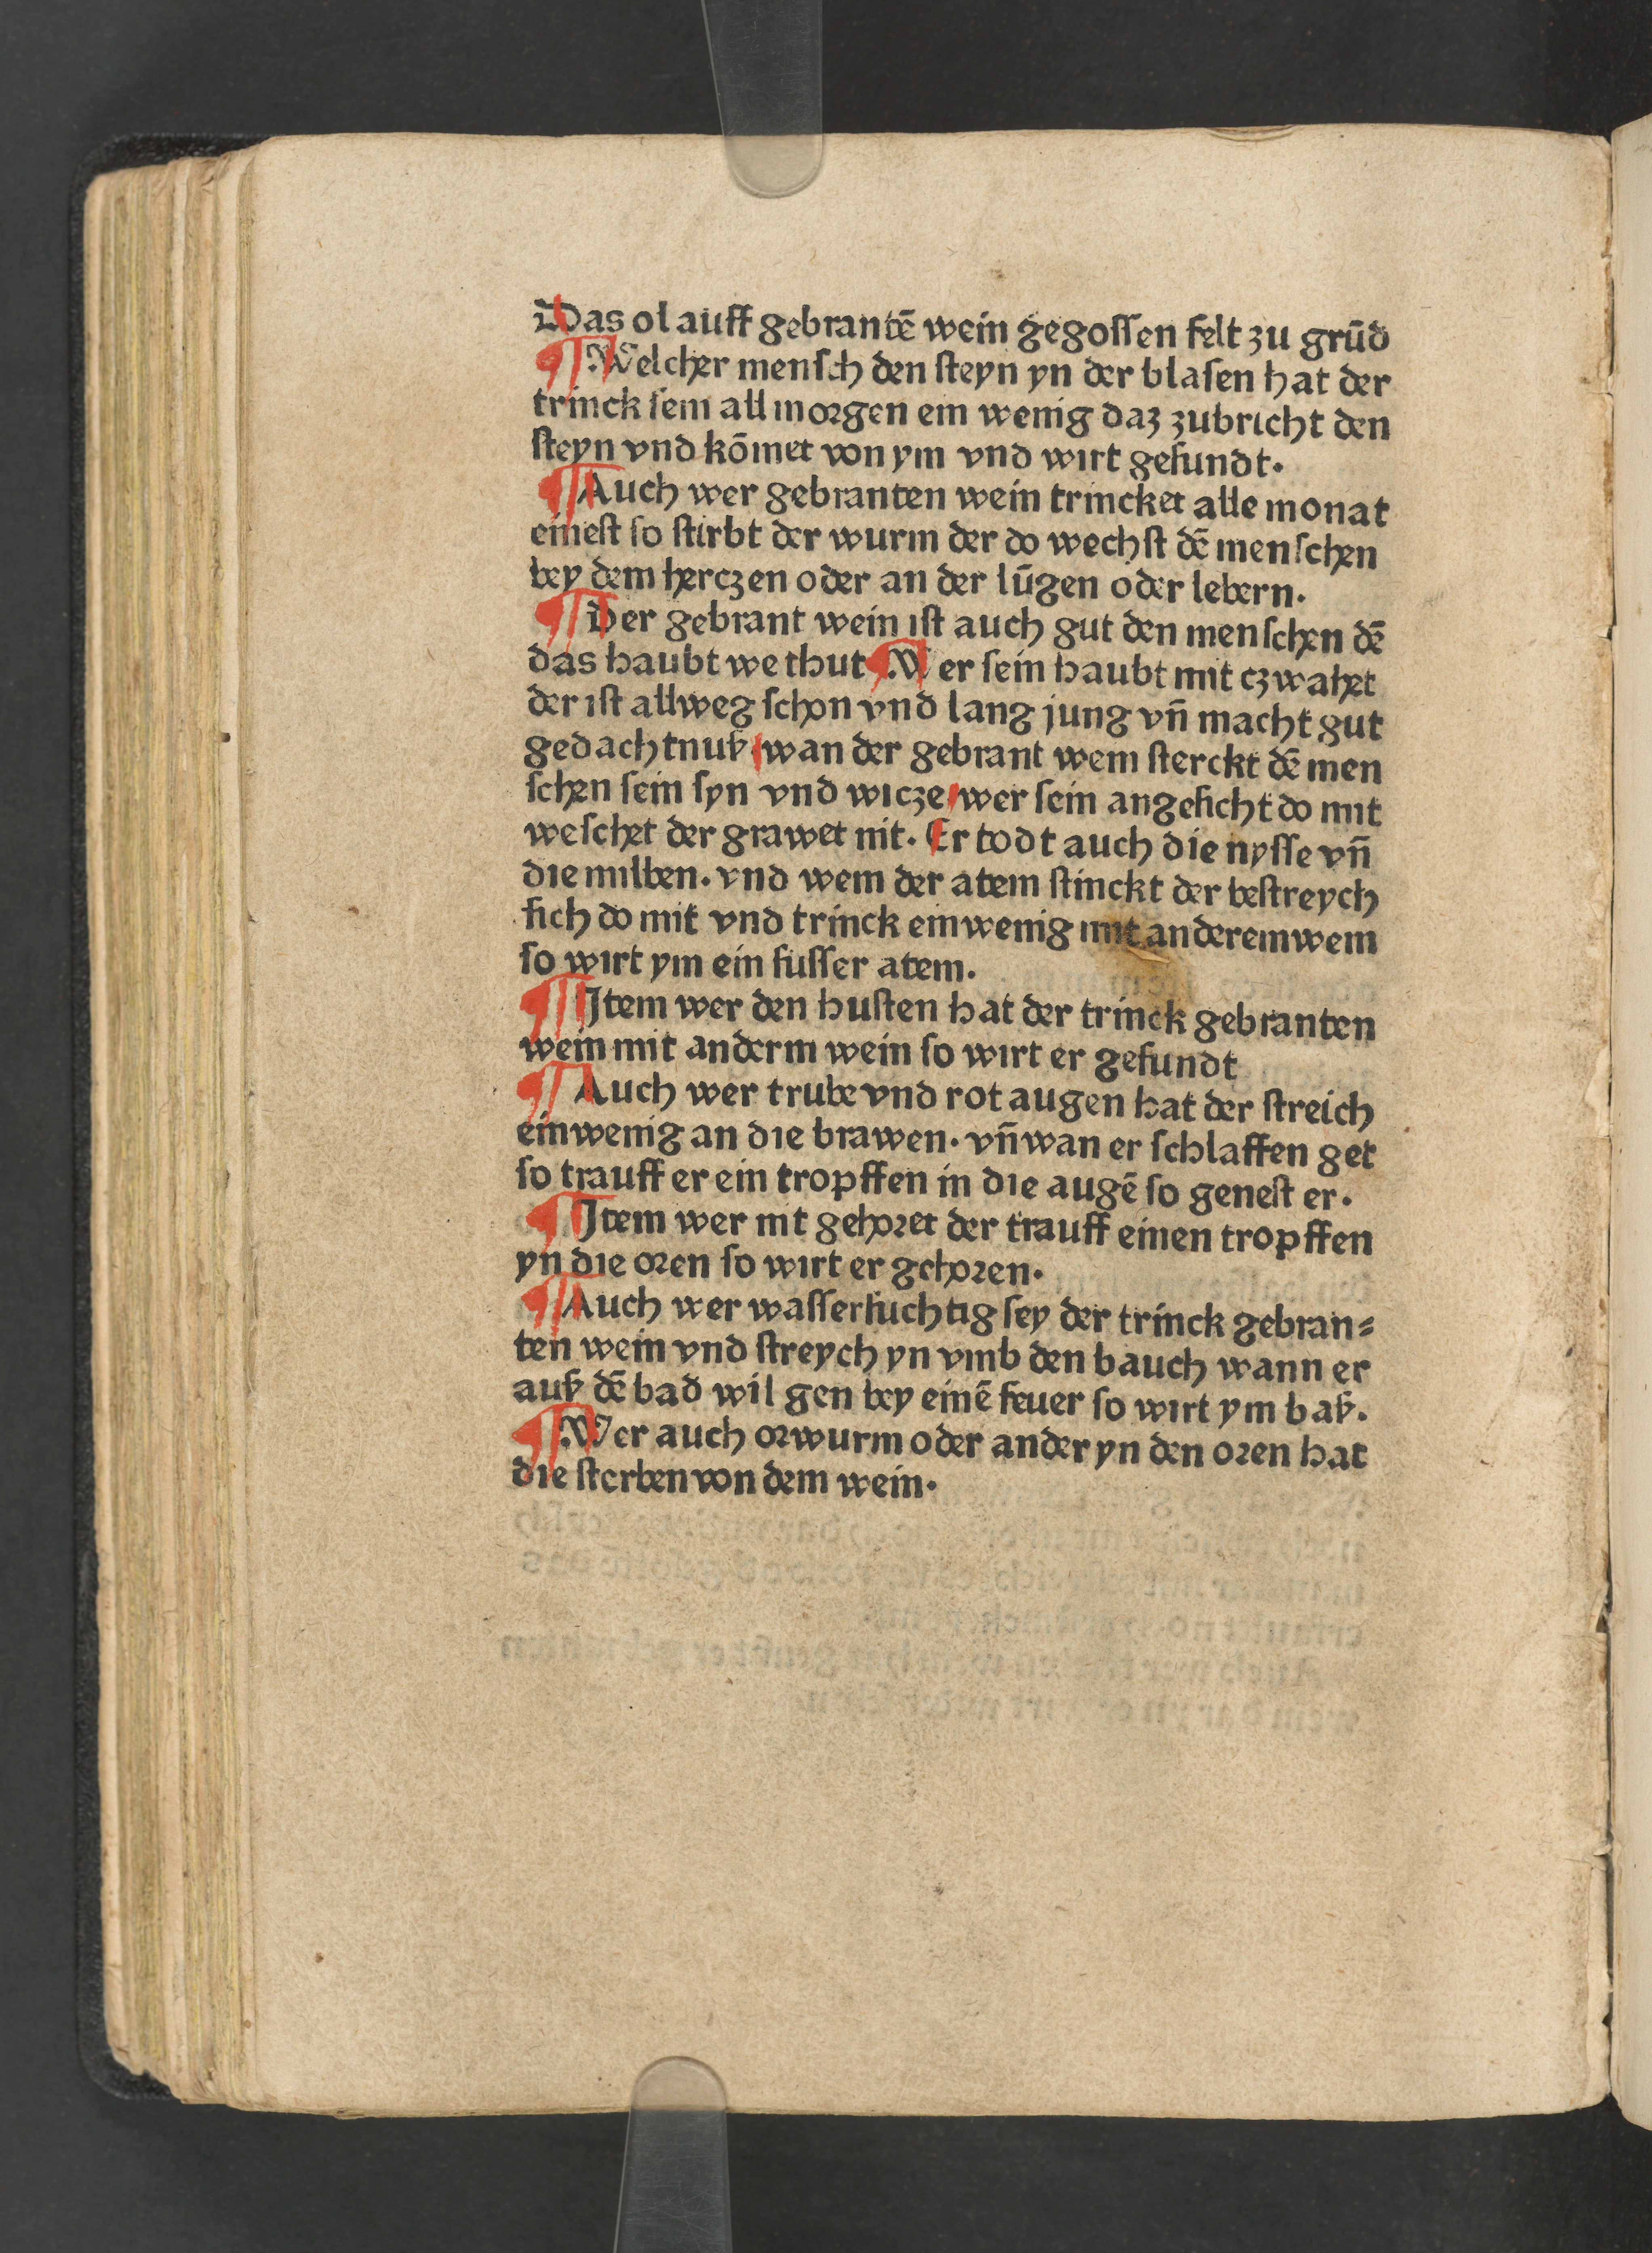 Das ol auff gebrantē wein gegoſſen felt zu grūd
¶ Welcher menſch den ſteyn yn der blaſen hat der
trinck ſein all morgen ein wenig daz zubricht den
ſteyn vnd kōmet von ym vnd wirt geſundt.
¶ Auch wer gebranten wein trincket alle monat
eineſt ſo ſtirbt der wurm der do wechſt dē menſchen
bey dem herczen oder an der lūgen oder lebern.
¶ Der gebrant wein iſt auch gut den menſchen dē
das haubt we thut ¶ Wer ſein haubt mit czwahet
der iſt allweg ſchon vnd lang jung vn̄ macht gut
gedachtnuß wan der gebrant wein ſterckt dē men
ſchen ſein ſyn vnd wicze wer ſein angeſicht do mit
weſchet der grawet nit. Er todt auch die nyſſe vn̄
die milben. vnd wem der atem ſtinckt der beſtreych
ſich do mit vnd trinck ein wenig mit anderem wein
ſo wirt ym ein ſuſſer atem.
¶ Item wer den huſten hat der trinck gebranten
wein mit anderm wein ſo wirt er geſundt
¶ Auch wer trube vnd rot augen hat der ſtreich
ein wenig an die brawen. vn̄ wan er ſchlaffen get
ſo trauff er ein tropffen in die augē ſo geneſt er.
¶ Item wer nit gehoret der trauff einen tropffen
yn die oren ſo wirt er gehoren.
¶ Auch wer waſſerſuchtig ſey der trinck gebran⸗
ten wein vnd ſtreych yn vmb den bauch wann er
auß dē bad wil gen bey einē feuer ſo wirt ym baß.
¶ Wer auch orwurm oder ander yn den oren hat
die ſterben von dem wein.